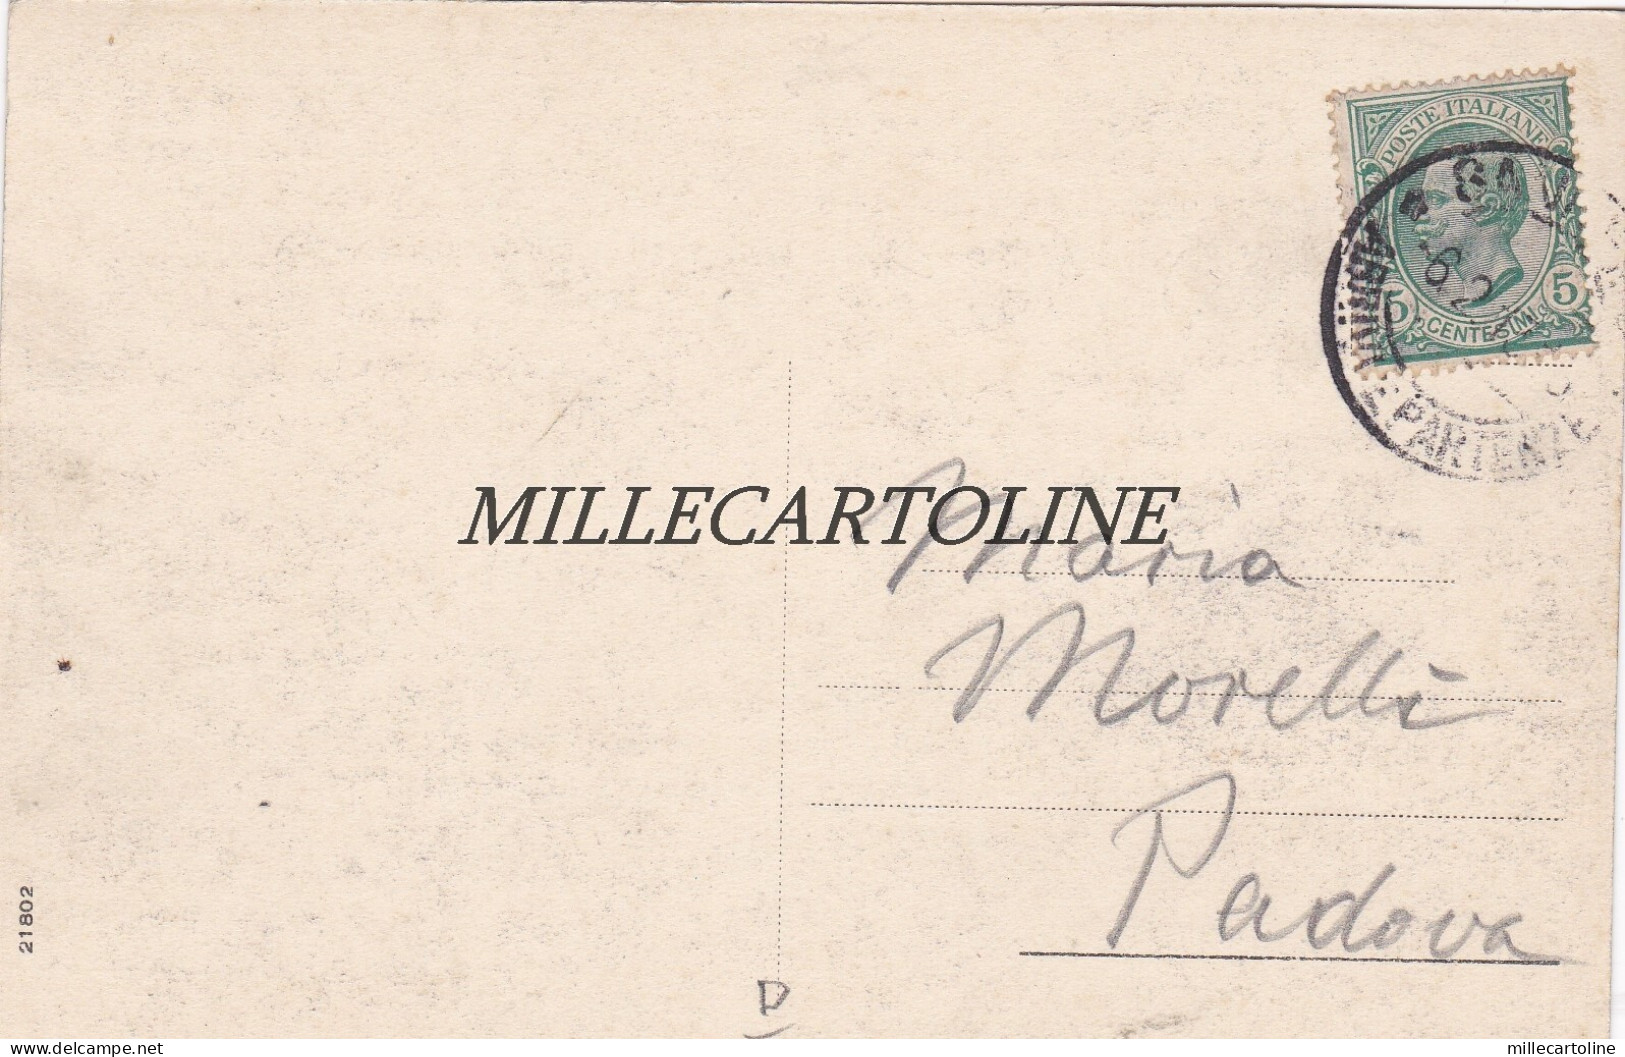 POSTE ITALIANE
5 CENTESIMI 5
ARRIVI E PARTENZE
MILLECARTOLINE
Maria
Morelli
Padova
21802
P
www.delcampe.net
millecartoline